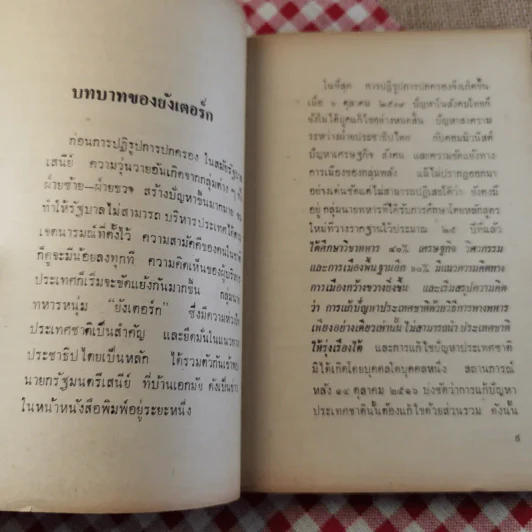 บทบาทของยังเตอร์ก
ก่อนการปฏิรูปการปกครอง ในสมัยรัฐบาล
เสนีย์ ความวุ่นวายอันเกิดจากกลุ่มต่าง ๆ
ฝ่ายซ้าย—ฝ่ายขวา สร้างปัญหาขึ้นมากมาย
ทำให้รัฐบาลไม่สามารถ บริหารประเทศได้ตาม
เจตนารมณ์ที่ตั้งไว้ ความสามัคคีของคนในชาติ
ก็ดูจะมีน้อยลงทุกที ความคิดเห็นของผู้บริหาร
ประเทศก็เริ่มจะขัดแย้งกันมากขึ้น กลุ่มนาย
ทหารหนุ่ม “ยังเตอร์ก” ซึ่งมีความห่วงใย
ประเทศชาติเป็นสำคัญ และยึดมั่นในแนวทาง
ประชาธิปไตยเป็นหลัก ได้รวมตัวกันเข้าพบ
นายกรัฐมนตรีเสนีย์ ที่บ้านเอกมัย ดังเป็นข่าว
ในหน้าหนังสือพิมพ์อยู่ระยะหนึ่ง
ในที่สุด การปฏิรูปการปกครองจึงเกิดขึ้น
เมื่อ ๖ ตุลาคม ๒๕๑๙ ปัญหาในสังคมไทยก็
ยังไม่ได้ยุติแก้ไขอย่างหมดสิ้น ปัญหาสงคราม
ระหว่างฝ่ายประชาธิปไตย กับคอมมิวนิสต์
ปัญหาเศรษฐกิจ สังคม และความขัดแย้งทาง
การเมืองของกลุ่มพลัง แม้ไม่ปรากฏออกมา
อย่างเด่นชัดแต่ไม่สามารถปฏิเสธได้ว่า ยังคงมี
อยู่ กลุ่มนายทหารที่ได้รับการศึกษาโดยหลักสูตร
ใหม่ที่วางรากฐานไว้ประมาณ ๒๕ ปีที่แล้ว
ได้ศึกษาวิชาทหาร ๔๐% เศรษฐกิจ วิศวกรรม
และการเมืองพื้นฐานอีก ๖๐% มีแนวความคิดทาง
การเมืองกว้างขวางยิ่งขึ้น และเริ่มสรุปความคิด
ว่า การแก้ปัญหาประเทศชาติด้วยวิธีการทางทหาร
เพียงอย่างเดียวเท่านั้น ไม่สามารถนำ ประเทศชาติ
ให้รุ่งเรืองได้ และการแก้ไขปัญหาประเทศชาติ
มิได้เกิดโดยบุคคลใดบุคคลหนึ่ง สถานการณ์
หลัง ๑๔ ตุลาคม ๒๕๑๖ บ่งชัดว่าการแก้ปัญหา
ประเทศชาตินั้นต้องแก้ไขด้วยส่วนรวม ดังนั้น
๕